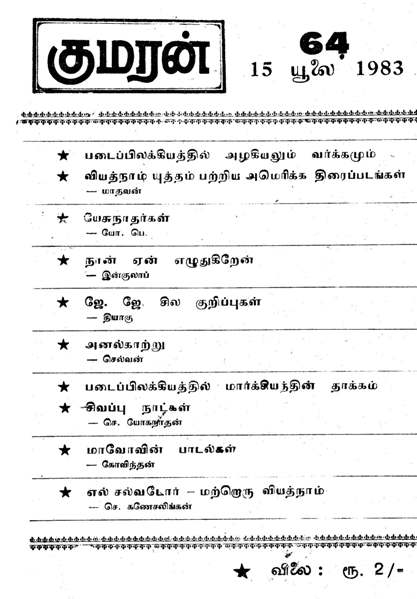 குமரன்
64
15 யூலை 1983
★ படைப்பிலக்கியத்தில் அழகியலும் வர்க்கமும்
★ வியத்நாம் யுத்தம் பற்றிய அமெரிக்க திரைப்படங்கள்
— மாதவன்
★ யேசுநாதர்கள்
— யோ. பெ.
★ நான் ஏன் எழுதுகிறேன்
— இன்குலாப்
★ ஜே. ஜே. சில குறிப்புகள்
— தியாகு
★ அனல்காற்று
— செல்வன்
★ படைப்பிலக்கியத்தில் மார்க்சியத்தின் தாக்கம்
★ சிவப்பு நாட்கள்
— செ. யோகநாதன்
★ மாவோவின் பாடல்கள்
— கோவிந்தன்
★ எல் சல்வடோர் – மற்றொரு வியத்நாம்
— செ. கணேசலிங்கன்
★ விலை : ரூ. 2/-